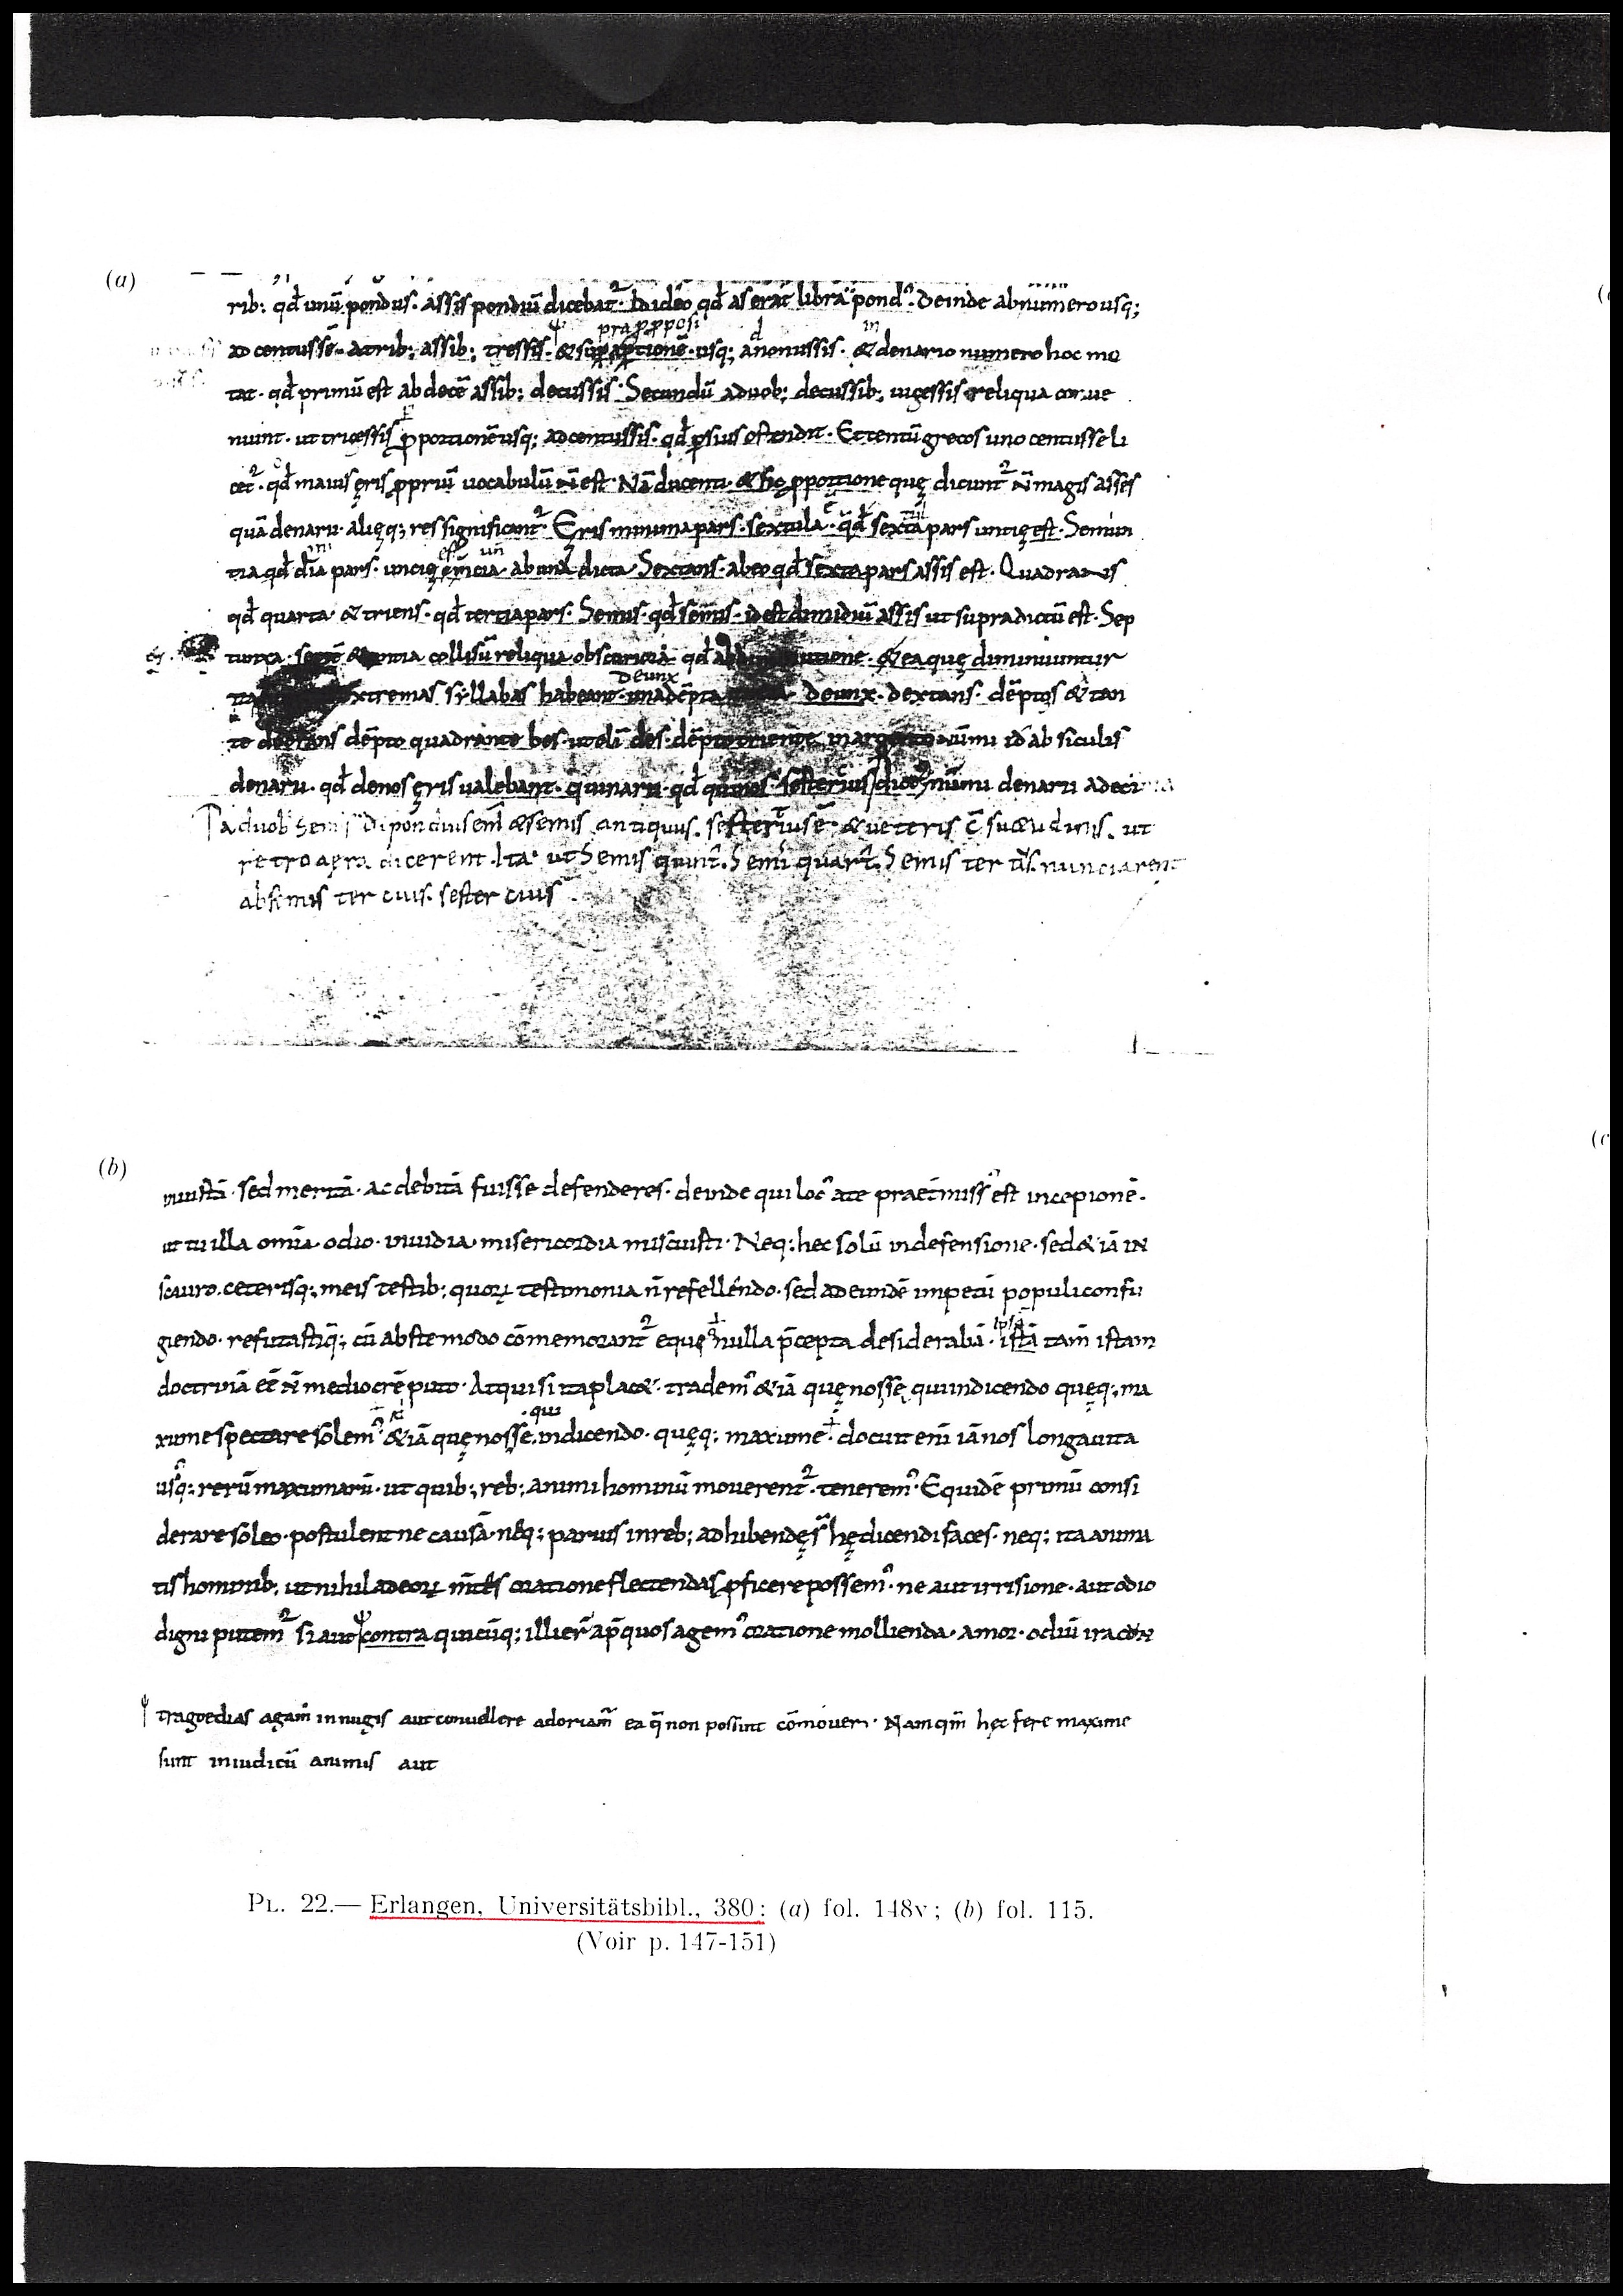 (a)
rib: qđ unū pondus. assis pondiū dicebat᷑. Id ideo qđ as erat libra pond᷒. Deinde abnumerousq;
pra ꝓposi d in
ad centussē. atrib; assib; tressis. & usq; anonussis. & denario numero hoc mo
tat. qđ primū est ab decē assib; decussis. Secundū aduob; decussib; uigessis reliqua conue
niunt. ut tricessis ꝓportionē usq; adcentussis. qđ ꝑsius ostendit. Et tentū grecos uno centusse li
cet᷑. qđ maius ęris ꝓpriū uocabulū n̄ est. Nā ducenti. & hc ꝓportione quę dicunt᷑ n̄ magis asses
quā denarii. alięq; res significant᷑. Ęris minima pars. sextula. qđ sexta pars uncię est. Semun
tia qđ pars. uncię uncia ab una dicta. Sextans. abeo qđ sexta pars assis est. Quadrans
qđ quarta & triens. qđ tertia pars. Semis. qđ semis. id est dimidiū assis ut supra dictū est. Sep
tunx a septē & uncia collisū reliqua obscuriora qđ ab & ea quę diminiuntur
Deunx
extremas syllabas habeant. una dēpta Deunx. dextans. dēptos & tan
te dēpto quadrante bes. ut oli des. dēpto triente in argento nūmi id ab siculis
denarii. qđ denos ęris ualebant. quinarii. qđ quinos. sestertius nūmu denarii adeci
aduob semis Dipondius enī & semis antiquus. sestertius ē. & ueteris c̄suetudinis. ut
retro aera dicerent. Ita ut Semis quint᷒. Semis quart᷒. Semis tertius nunciarent
absemis tercius. sestercius
(b)
iniustā. sed meritā. ac debitā fuisse defenderes. deinde qui loc᷒ ate praetmiss᷒ est incepionē.
ut tu illa omīa odio. inuidia misericordia miscuisti. Neq; hec solū indefensione. sed&iā in
scauro. ceterisq; meis testib; quoꝝ testimonia n̄ refellendo. sed ad eundē impetū populi confu
ipsā
giendo. refutastiq̄; cū abste modo cōmemorant᷑ equę nulla p̄cepta desiderabā. istā tam̄ istam
doctrinā eē n̄ mediocrē puto. Atqui si ita plac&. tradem᷒ &iā quę nosse quiindicendo quęq; ma
qui
xime spectare solem᷒ &iā quę nosse. indicendo. quęq; maxime. docuit enī iā nos longa uita
usq᷒; rerū maximarū. ut quib; reb; animi hominū mouerent᷑. tenerem᷒. Equidē primū consi
derare soleo. postulent ne causā. neq; paruis inreb; adhibendę s̄ hę dicendi faces. neq; ita anima
tis hominib; ut nihil adeoꝝ mētes oratione flectendas ꝓficere possem᷒. ne aut irrisione. aut odio
digni putem᷑ si aut contra quicūq; illi er̄ ap̄ quos agem᷒ oratione mollienda. amor. odiū iracon
tragoedias agam᷒ innugis aut conuellere adoriam᷑ ea q̄ non possint cōmoueri. Nam qm̄ hęc fere maxime
sunt iniudicū animis aut
PL. 22.— Erlangen, Universitätsbibl., 380: (a) fol. 148v; (b) fol. 115.
(Voir p. 147-151)